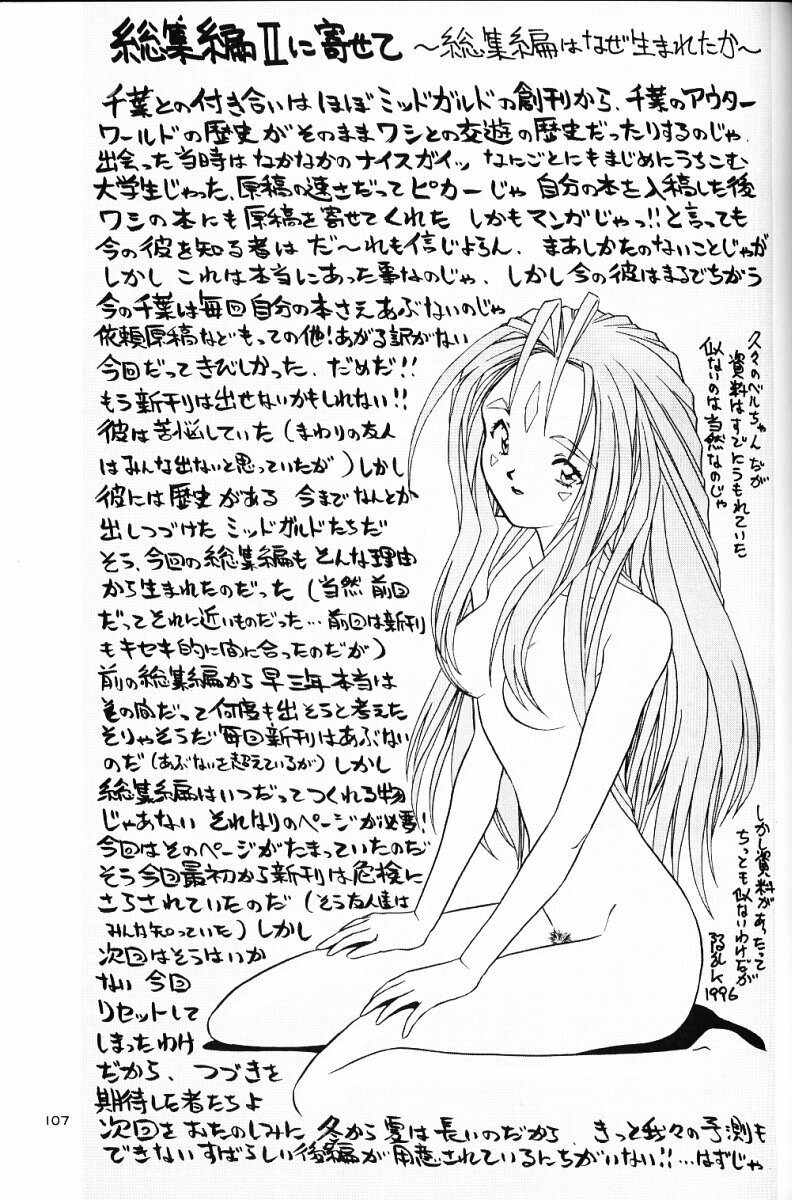 総集編Ⅱに寄せて ～総集編はなぜ生まれたか～
千葉との付き合いは ほぼミッドガルドの創刊から、千葉のアウター
ワールドの歴史がそのままワシとの交遊の歴史だったりするのじゃ.
出会った当時はなかなかのナイスガイッ なにごとにもまじめにうちこむ
大学生じゃった、原稿の速さだってピカ一じゃ 自分の本を入稿した後
ワシの本にも原稿を寄せてくれた しかもマンガじゃっ!!と言っても
今の彼を知る者は だ～れも信じよらん、まあしかたのないことじゃが
しかし これは本当にあった事なのじゃ、しかし今の彼はまるでちがう
今の千葉は毎回自分の本さえあぶないのじゃ
依頼原稿などもっての他!あがる訳がない
今回だってきびしかった、だめだ!!
もう新刊は出せないかもしれない!!
彼は苦悩していた (まわりの友人
はみんな出ないと思っていたが) しかし
彼には歴史がある 今までなんとか
出しつづけた ミッドガルドたちだ
そう、今回の総集編も そんな理由
から生まれたのだった (当然 前回
だってそれに近いものだった…前回は新刊
もキセキ的に間に合ったのだが)
前の総集編から 早三年 本当は
その間だって何度も出そうと考えた
そりゃそうだ 毎回新刊はあぶない
のだ (あぶないを超えているが) しかし
総集編はいつだってつくれる物
じゃあない それなりのページが必要!
今回はそのページがたまっていたのだ
そう今回最初から新刊は危険に
さらされていたのだ (そう友人達は
みんな知っていた) しかし
次回はそうはいか
ない 今回
リセットして
しまったわけ
だから、つづきを
期待した者たちよ
次回をおたのしみに 冬から夏は長いのだから、きっと我々の予測も
できないすばらしい後編が用意されているにちがいない!!…はずじゃ
久々のベルちゃんだが
資料はすでにうもれていた
似ないのは当然なのじゃ
しかし資料があったって
ちっとも似ないわけだが
1996
107